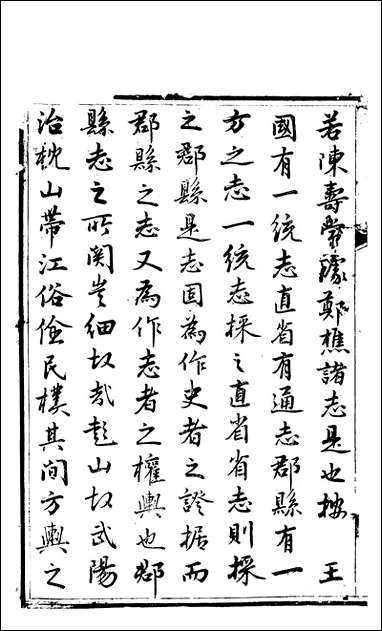 若陳壽常璩鄭樵諸志是也按　王
國有一統志直省有通志郡縣有一
方之志一統志採之直省省志則採
之郡縣是志固為作史者之證据而
郡縣之志又為作志者之權輿也郡
縣志之所関豈細故哉彭山故武陽
治枕山帶江俗儉民樸其间方輿之